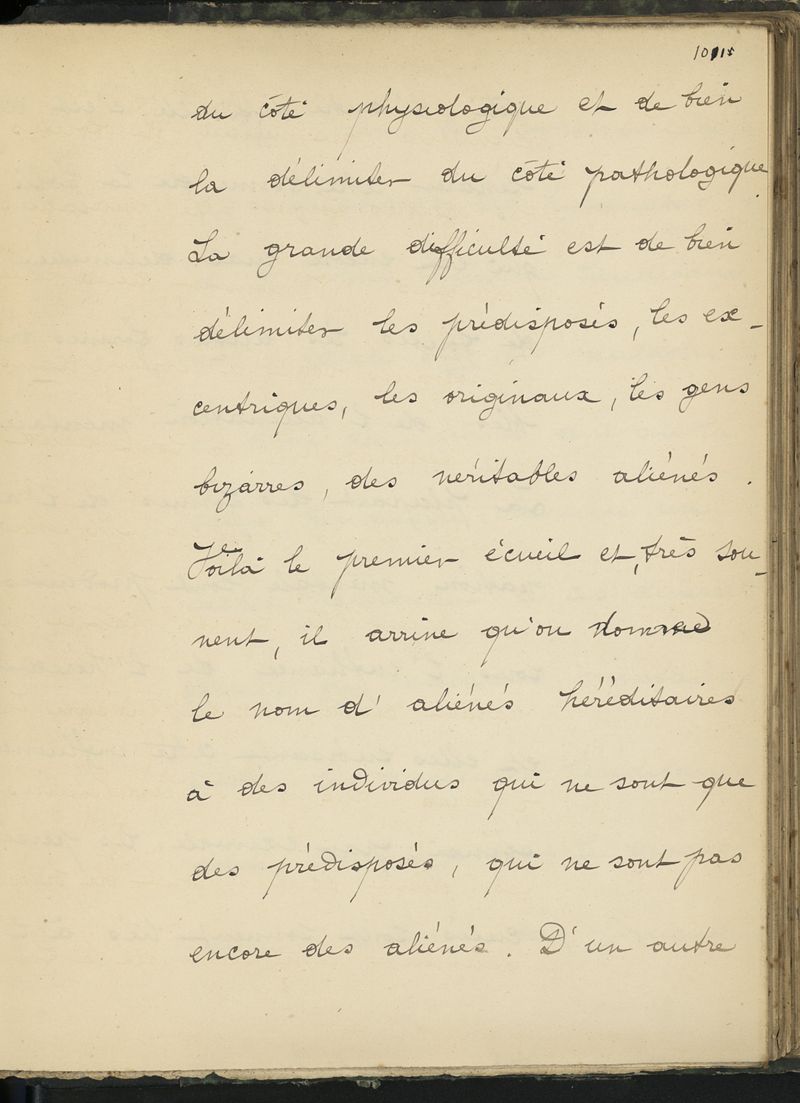 du côté physiologique et de bien
la délimiter du côté pathologique.
La grande difficulté est de bien
délimiter les prédisposés, les ex-
centriques, les originaux, les gens
bizarres, des véritables aliénés.
Voilà le premier écueil et, très sou-
vent, il arrive qu'on donne
le nom d'aliénés héréditaires
à des individus qui ne sont que
des prédisposés, qui ne sont pas
encore des aliénés. D'un autre